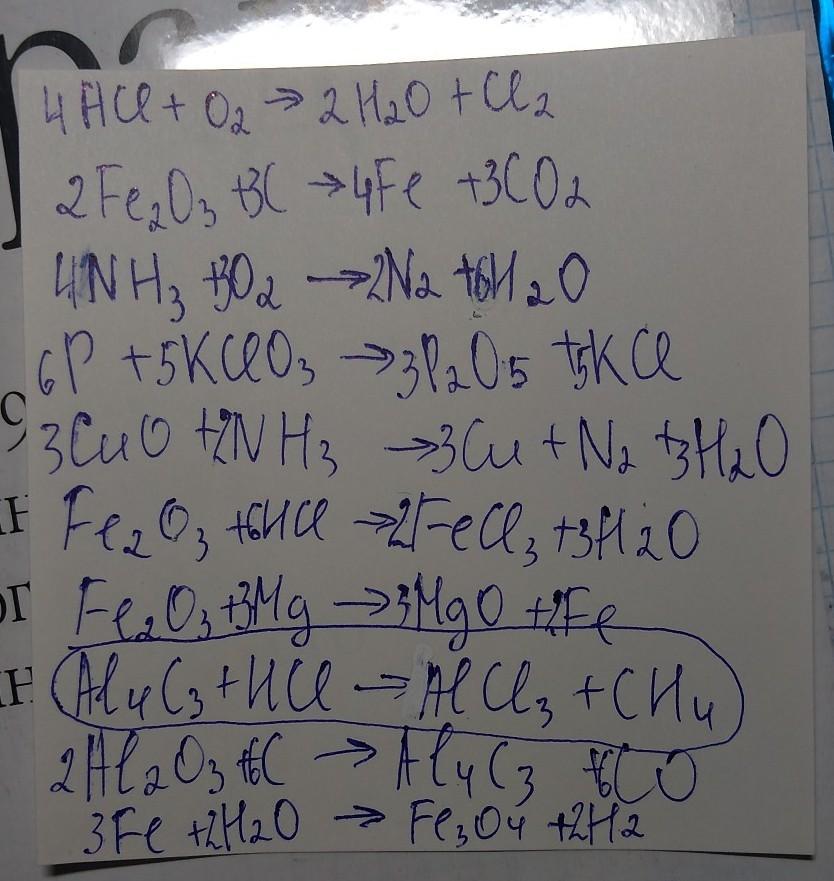 4HCl + O2 → 2H2O + Cl2
2Fe2O3 +3C → 4Fe +3CO2
4NH3 +3O2 → 2N2 +6H2O
6P +5KClO3 → 3P2O5 +5KCl
3CuO +2NH3 → 3Cu + N2 +3H2O
Fe2O3 +6HCl → 2FeCl3 +3H2O
Fe2O3 +3Mg → 3MgO +2Fe
Al4C3 + HCl → AlCl3 + CH4
2Al2O3 +6C → Al4C3 +6CO
3Fe +2H2O → Fe3O4 +2H2